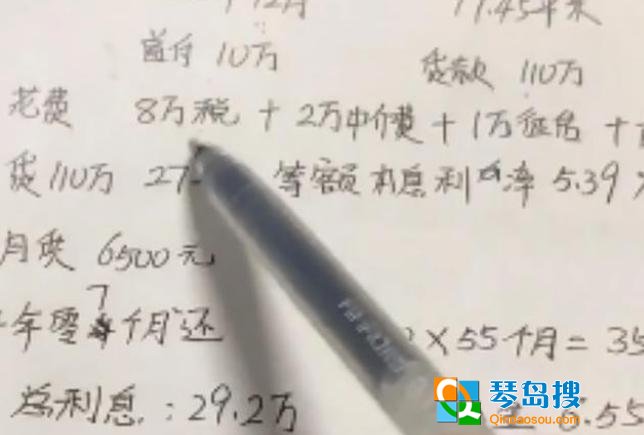 12月 77.45平米
首付 10万 贷款 110万
花费 8万税 + 2万中介费 + 1万
贷110万 27 等额本息利率 5.39%
月供 6500元
年零7个月还 ×55个月= 35
总利息:29.2万 5.55
琴岛搜
Qindaosou.com